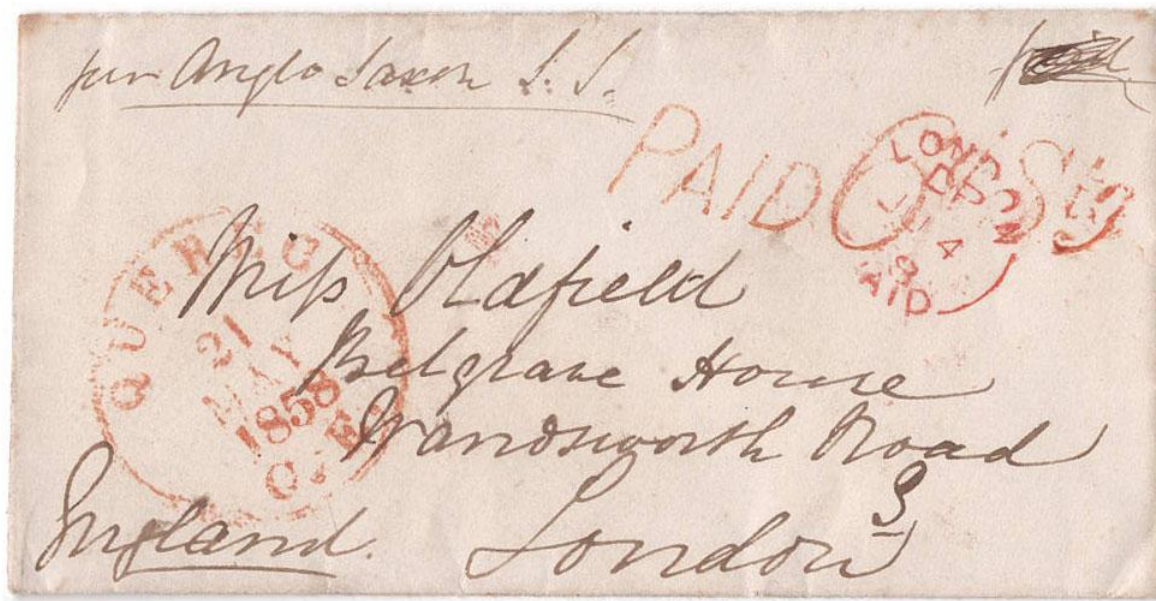 per Anglo Saxon S.S.
PAID 6 Stg
LOND
4
PAID
QUEBEC
21
MAY
1858
Miss Oldfield
Belgrave House
Wandsworth Road
London S
England.